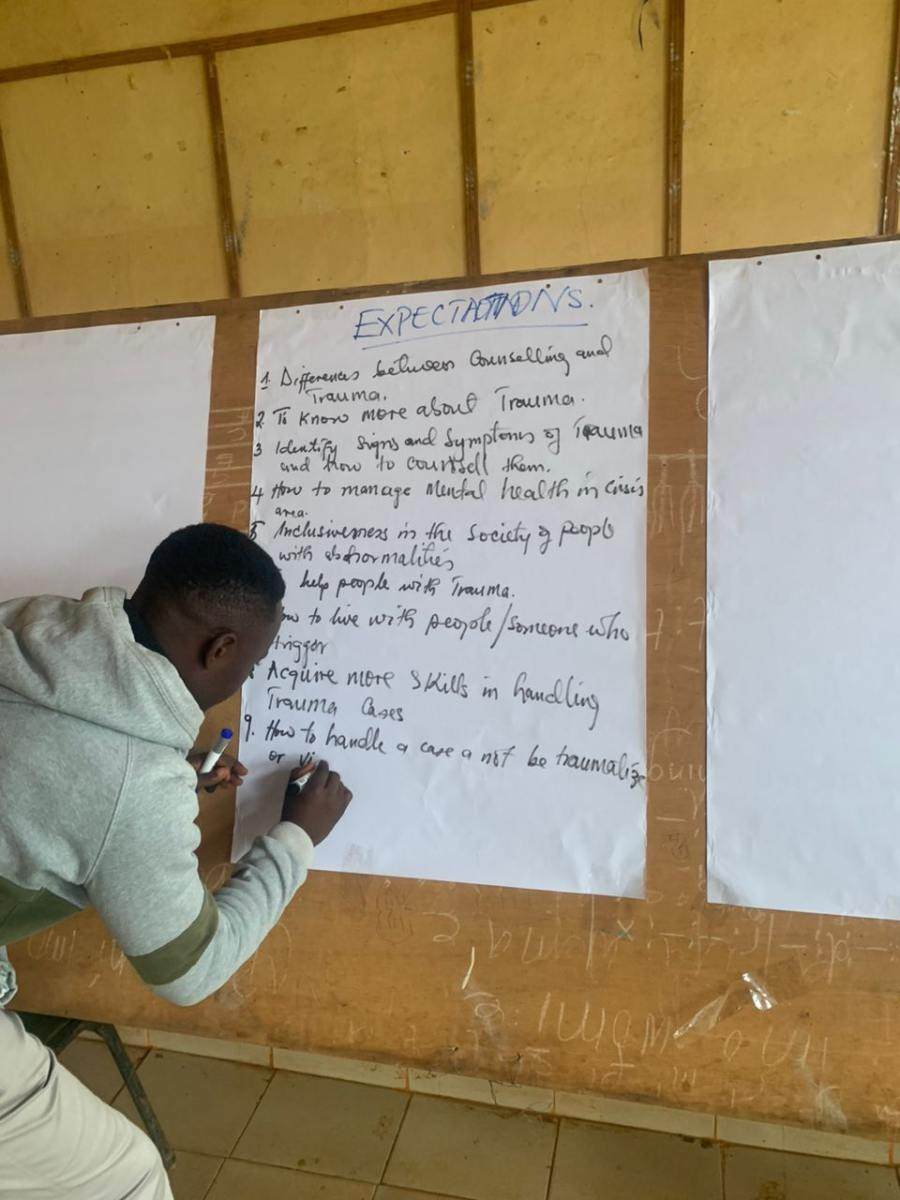 EXPECTATIONS.
1. Differences between Counselling and
Trauma.
2. To Know more about Trauma.
3 Identify Signs and Symptoms of Trauma
and how to counsell them.
4 How to manage Mental health in Crisis
area.
5 Inclusiveness in the Society of people
with abnormalities
help people with Trauma.
to live with people/someone who
trigger
Acquire more Skills in handling
Trauma Cases
9. How to handle a case a not be traumalize
or vi